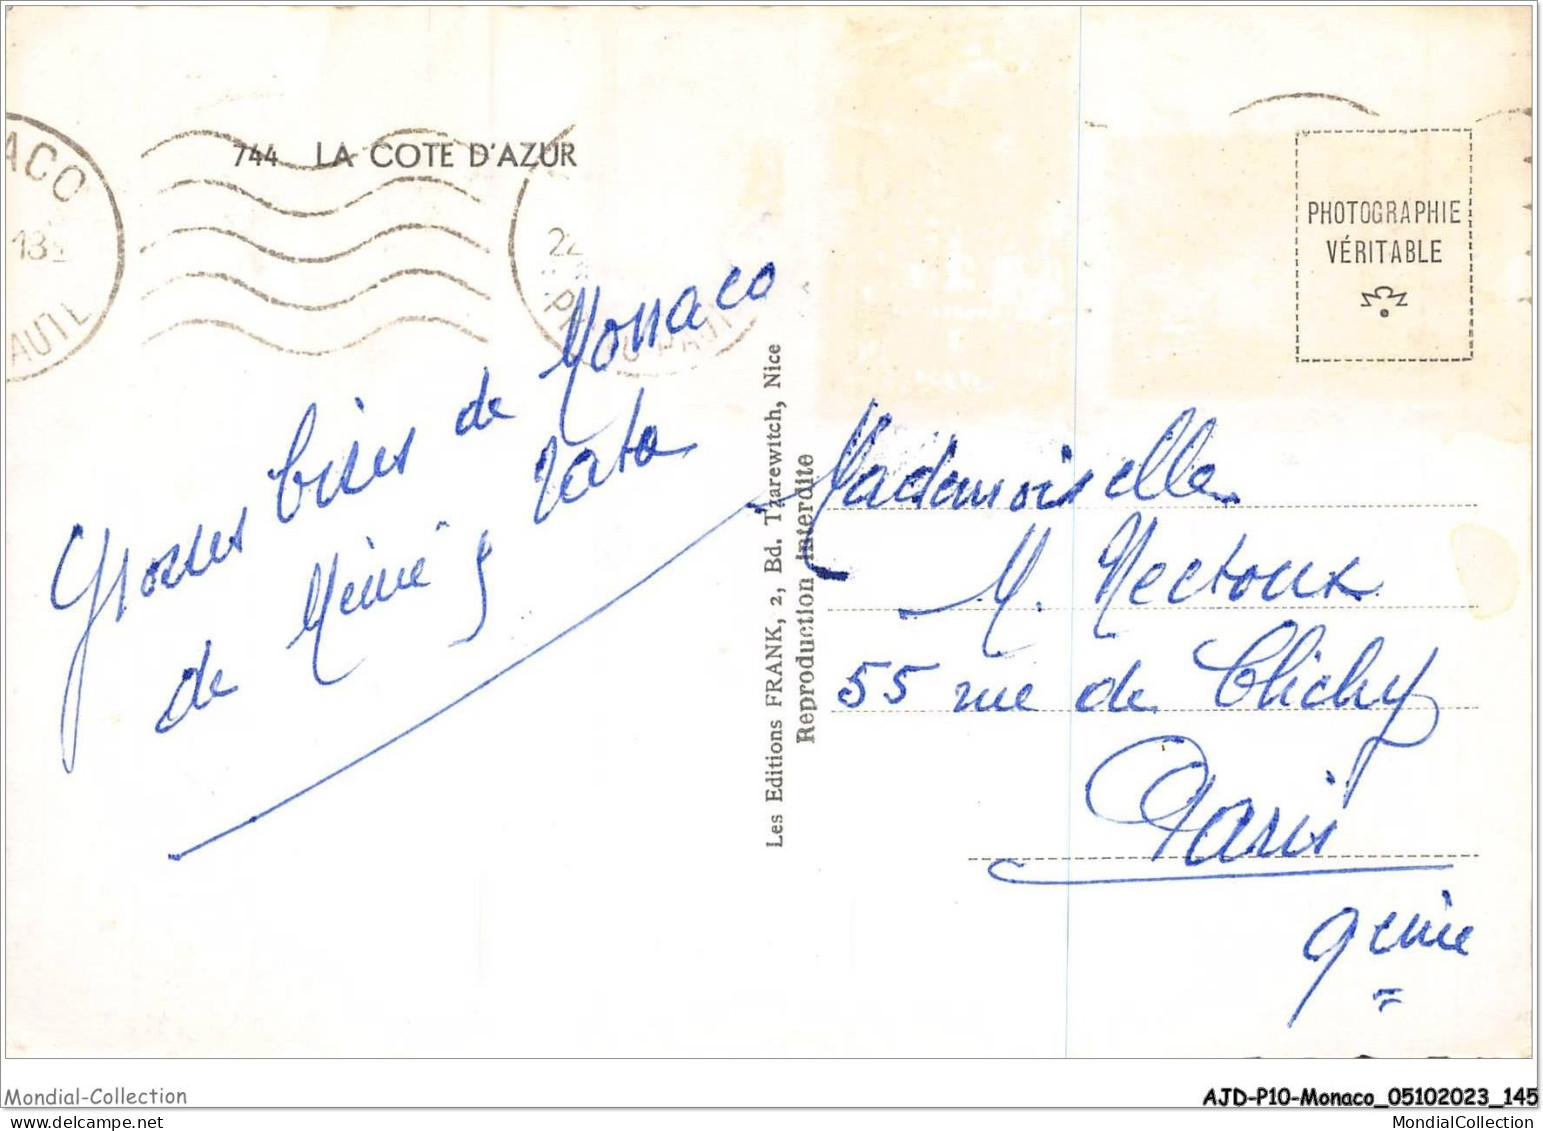 744 LA COTE D'AZUR
ACO
13
24
PHOTOGRAPHIE
VÉRITABLE
Grosses bises de Monaco
de Mémé & Tata
Les Editions FRANK, 2, Bd. Tzarewitch, Nice
Reproduction interdite
Mademoiselle
M. Nectoux
55 rue de Clichy
Paris
9eme
Mondial-Collection
AJD-P10-Monaco_05102023_145
MondialCollection